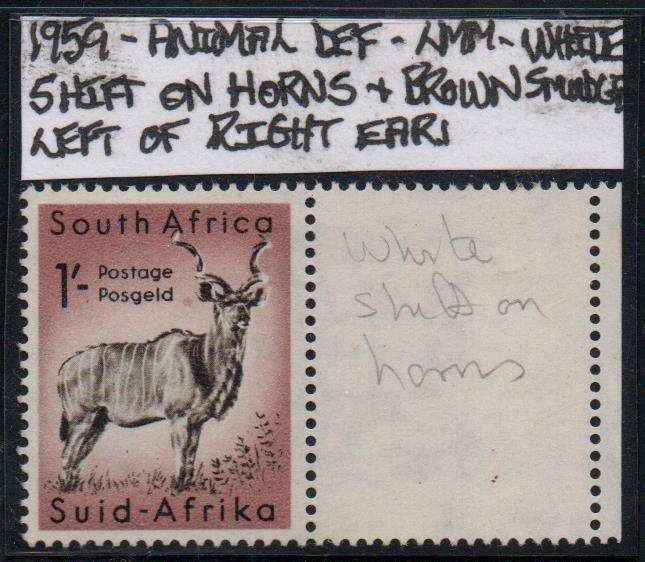 1959 - ANIMAL DEF - LMM - WHITE
SHIFT ON HORNS + BROWN SMUDGE
LEFT OF RIGHT EAR!
South Africa
1'- Postage
Posgeld
Suid-Afrika
White
shift on
horns